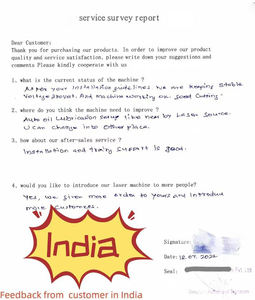 service survey report
Dear Customer:
Thank you for purchasing our products. In order to improve our product
quality and service satisfaction, please write down your suggestions
and comments Please kindly cooperate with us
1. what is the current status of the machine ?
After your installation guidelines we are keeping stable
Voltage. And machine working on good cutting
2. where do you think the machine need to improve ?
Auto oil Lubrication setup like near by Laser source.
U can change into other place.
3. how about our after-sales service ?
Installation and training support is good.
4. would you like to introduce our laser machine to more people?
Yes, we given more order to yours and introduce
more customers.
India
Signature:
Date: 12.07.2022
Seal:
Feedback from customer in India